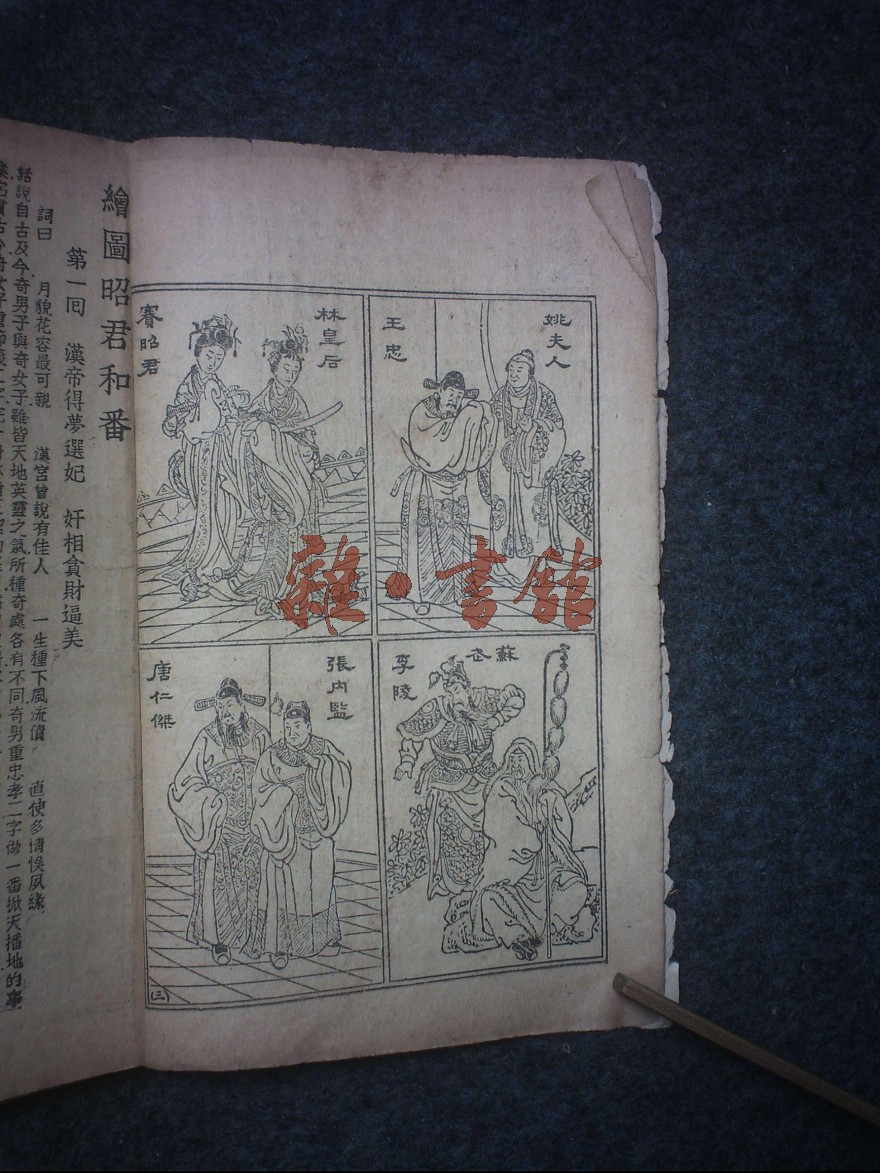 姚夫人
王忠
林皇后
賽昭君
蘇武
李陵
張內監
唐仁傑
(三)
雜·書館
繪圖昭君和番
第一回 漢帝得夢選妃 奸相貪財逼美
詞曰 月貌花容最可親 漢宮曾說有佳人 一生種下風流債 直使多情悞夙緣
話說自古及今奇男子與奇女子雖皆天地英靈之氣所種奇處各有不同奇男重忠孝二字做一番掀天播地的事